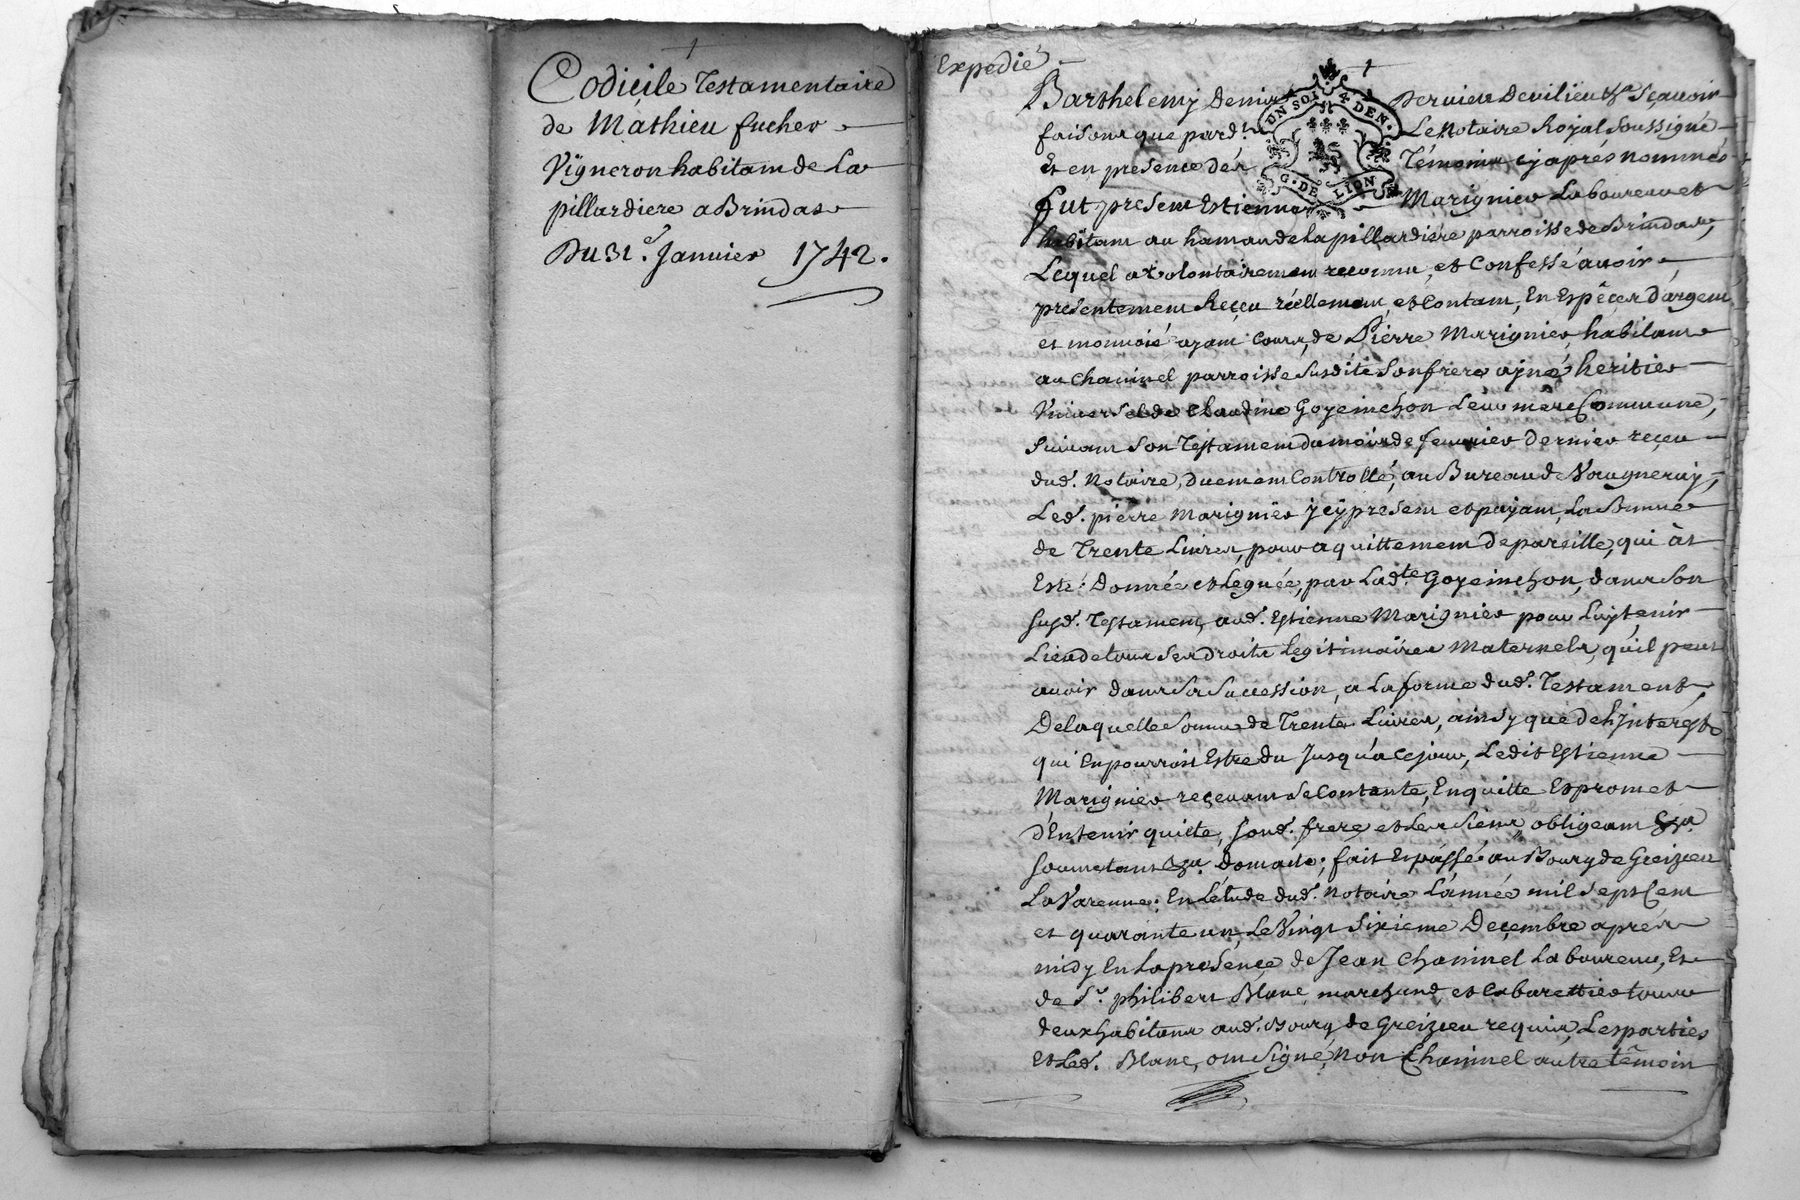 Codicile Testamentaire
de Mathieu fucher
Vigneron habitant de La
pillardiere a Brindas
Du 31e. Janvier 1742.
Expedié
Barthelemy Denis Dervieu Devilieu &a Sçavoir
faisons que pard.t Le Notaire Royal Soussigné
Et en presence des Témoins cy après nommés
UN SOL 4 DEN.
G. DE LION
fut present Estienne Marignier Laboureur et
habitant au hameau de la pillardiére parroisse de Brindas,
Lequel a volontairement reconnu, et Confessé avoir
presentement Reçeu réellement, et Contant, En Espéçes D'argent
et monnoié ayant Cours, de Pierre Marignier, habitant
au Chaninel parroisse Susdite Son frere ayné, heritier
Universel de Claudine Goyeinchon Leur mere Commune,
Suivant Son Testament du mois de fevrier Dernier reçeu
dud. Notaire, Duement Controllé, au Bureau de Vaugneray,
Led. pierre Marignier jcy present et payant, La Somme
de Trente Livres, pour aquittement De pareille, qui à
Esté Donnée et Leguée, par Lad.te Goyeinchon, dans Son
Susd. Testament, aud. Estienne Marignier pour Luy tenir
Lieu de tous Ses droits Legitimaires Maternels, qu'il peut
avoir dans Sa Succession, a La forme dud. Testament,
De laquelle Somme de Trente Livres, ainsy que de L'Intérest
qui En pourroit Estre du Jusqu'a Ce jour, Ledit Estienne
Marignier reçevant Se Contante, En quitte Et promet
d'En tenir quitte, Sond. frere et les Siens obligeant &a.
Soumetant &a. Domaile; fait Et passé au Bourg de Greizieu
La Varenne; En L'étude dud. Notaire L'année mil Sept Cent
et quarante un, Le Vingt Sixieme Deçembre aprés
midy En La presençe de Jean Chaninel Laboureur, Et
de S.r philibert Blanc marchand, et Cabarettier tous
deux habitans aud. Bourg de Greizieu requis, Les parties
Et Led. Blanc, ont Signé, Non Chaninel autre témoin